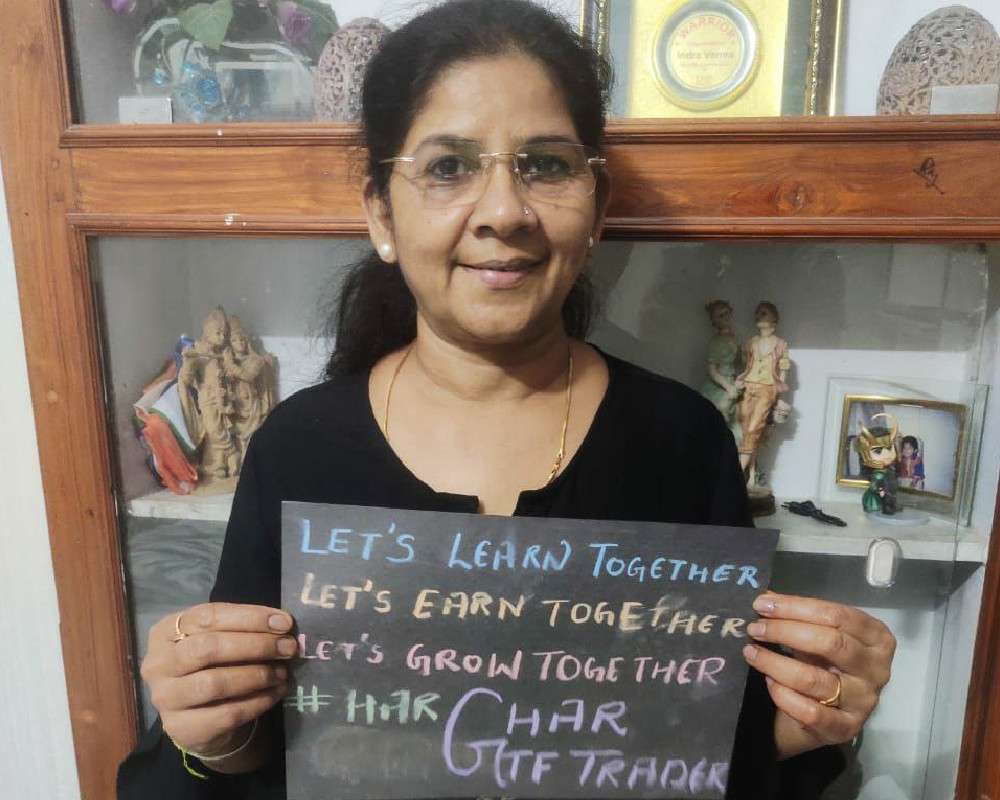 WARRIOR
Indra Verma
LET'S LEARN TOGETHER
LET'S EARN TOGETHER
LET'S GROW TOGETHER
# HAR GHAR
GTF TRADER